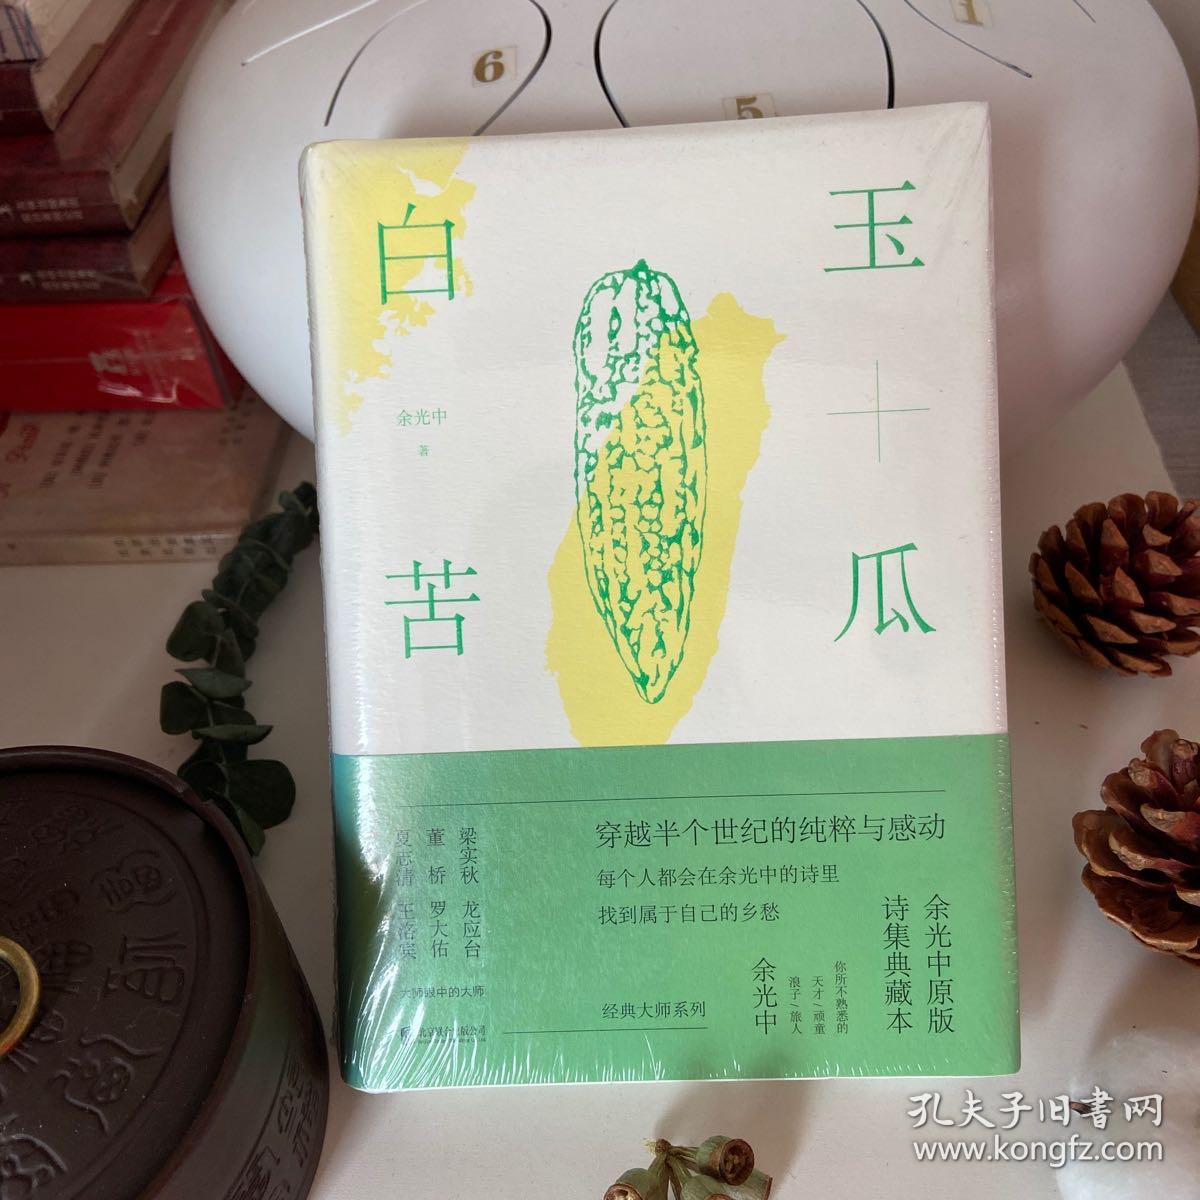 6
5
1
白玉
苦瓜
余光中
著
穿越半个世纪的纯粹与感动
每个人都会在余光中的诗里
找到属于自己的乡愁
余光中原版
诗集典藏本
你所不熟悉的
天才/顽童
浪子/旅人
余光中
经典大师系列
梁实秋 龙应台
董桥 罗大佑
夏志清 王洛宾
大师眼中的大师
北京联合出版公司
孔夫子旧書网
www.kongfz.com